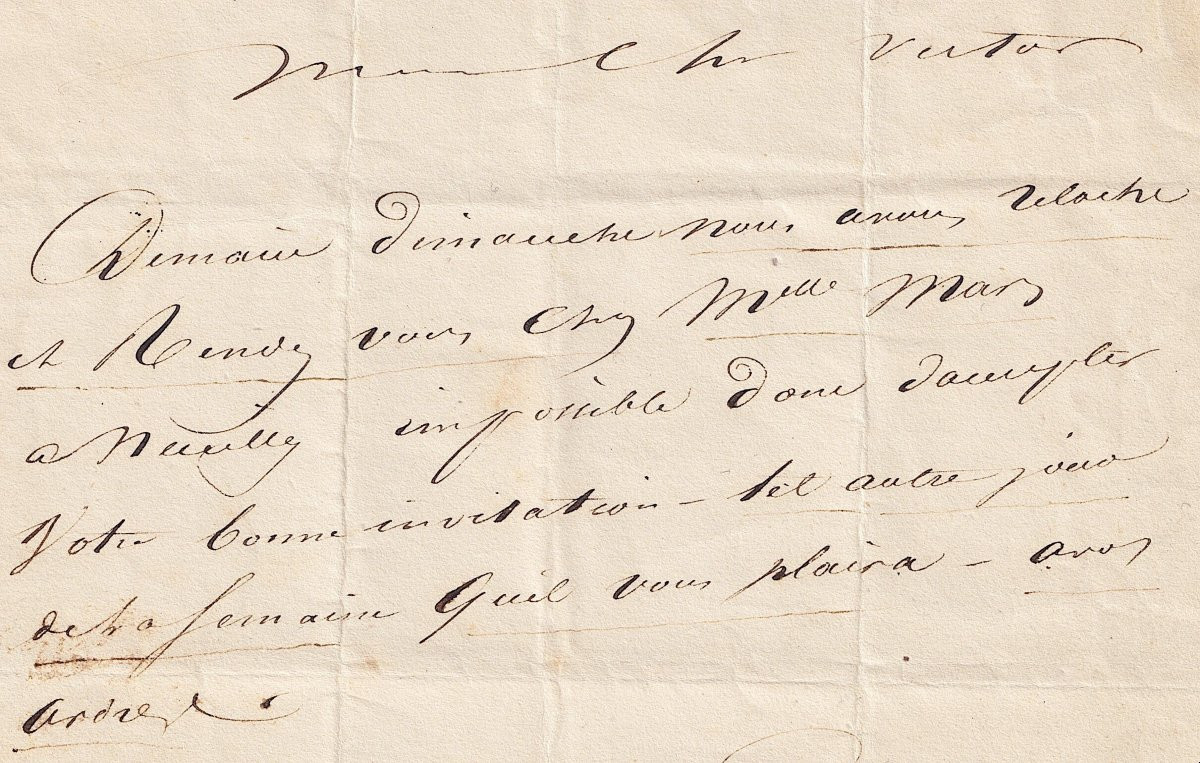 Mon Cher Victor
Demain dimanche nous avons relache
et Rendez vous chez Melle Mars
a Neuilly impossible donc daccepter
Votre bonne invitation - tel autre jour
de la semaine Quil vous plaira - a vos
ordres